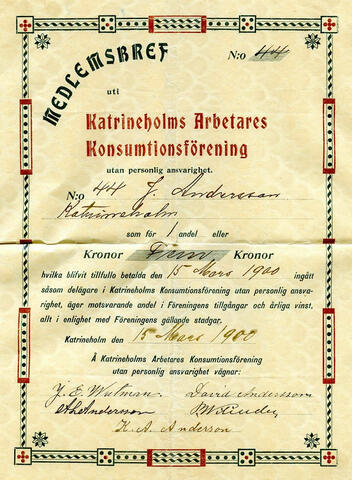 MEDLEMSBREF
N:o 44
uti
Katrineholms Arbetares
Konsumtionsförening
utan personlig ansvarighet.
N:o 44 J. Andersson
Katrineholm
som för 1 andel eller
Kronor Fem Kronor
hvilka blifvit tillfullo betalda den 15 Mars 1900 ingått
såsom delägare i Katrineholms Konsumtionsförening utan personlig ansva-
righet, äger motsvarande andel i Föreningens tillgångar och årliga vinst,
allt i enlighet med Föreningens gällande stadgar.
Katrineholm den 15 Mars 1900
Å Katrineholms Arbetares Konsumtionsförening
utan personlig ansvarighet vägnar:
J. E. Widman. David Andersson
Andersson
K. A. Anderson